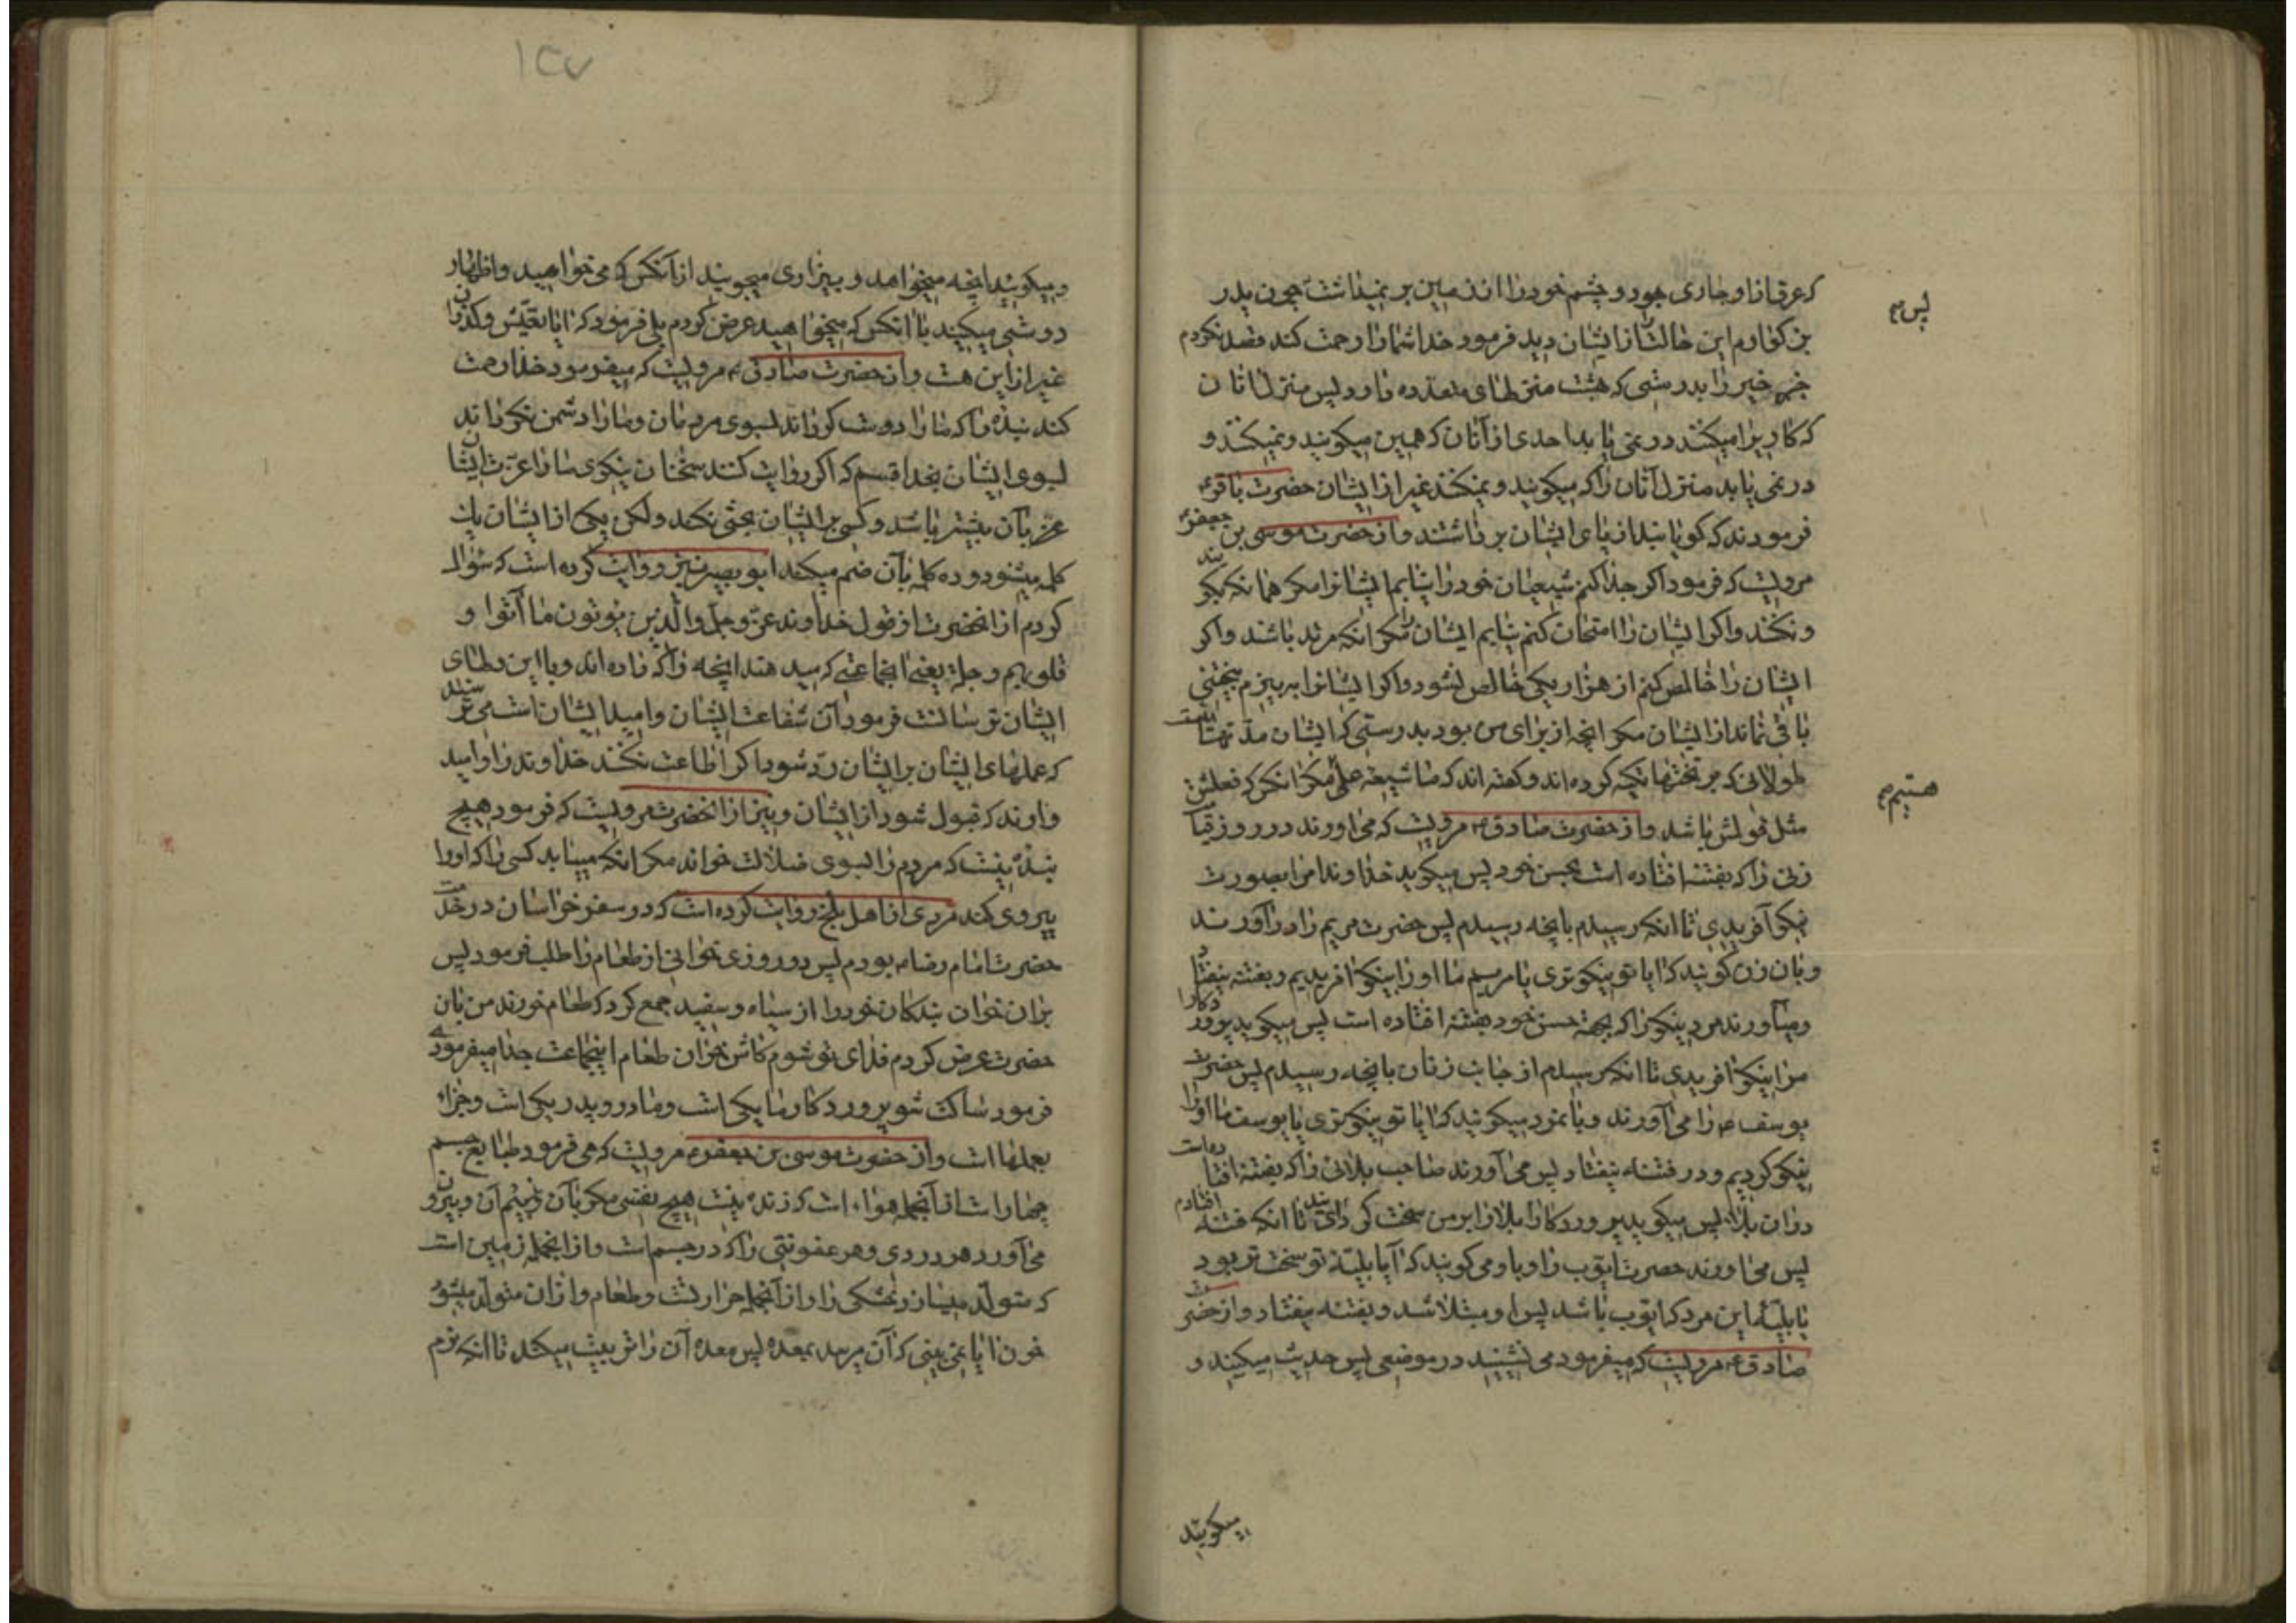 که عرق از او جاری بود و چشم خود را از زمین بر نمیداشت چون پدر
پس م
بزرگوارم این حالت را از ایشان دید فرمود خدا شما را رحمت کند قصد نکردم
جز خیر را بدرستی که بهشت منزلهای متعدده دارد پس منزل آنان
که کار برا میکنند در نمی یابد احدی از آنان که همین میگویند و نمیکنند و
در نمی یابد منزل آنان را که میگویند و نمیکنند غیر از ایشان حضرت باقر ع
فرمودند که گویا بند از پای ایشان برداشتند و از حضرت موسی بن جعفر ع
مرویست که فرمود اگر جدا کنم شیعیان خود را نیابم ایشانرا مگر همانکه بگویند
و نکنند و اگر ایشان را امتحان کنم نیابم ایشان را مگر آنکه مرتد باشند و اگر
ایشان را خالص کنم از هزار یکی خالص نشود و اگر ایشانرا ببیزم بیختنی
باقی نماند از ایشان مگر آنچه از برای من بود بدرستی که ایشان مدتهاست
که بر تختها تکیه کرده اند و گفته اند که ما شیعه علی مگر آنکس که فعلش
هستیم م
مثل قولش باشد و از حضرت صادق ع مرویست که می آورند در روز قیامت
زنی را که بفتنه افتاده است بحسن خود پس میگوید خداوندا مرا بصورت
نیکو آفریدی تا آنکه رسیدم بآنچه رسیدم پس حضرت مریم را در آورند
و بآن زن گویند که آیا تو نیکوتری یا مریم ما او را نیکو آفریدیم و بفتنه نیفتاد
و میآورند مرد نیکو را که بجهة حسن خود بفتنه افتاده است پس میگوید پروردگارا
مرا نیکو آفریدی تا آنکه رسیدم از جانب زنان بآنچه رسیدم پس حضرت
یوسف ع را می آورند و بآنمرد میگویند که آیا تو نیکوتری یا یوسف ما او را
نیکو کردیم و در فتنه نیفتاد پس می آورند صاحب بلائی را که بفتنه افتاده است
در آن بلا پس میگوید پروردگارا بلا را بر من سخت گردانیدی تا آنکه فتنه افتادم
پس می آورند حضرت ایوب را و باو می گویند که آیا بلیه تو سخت تر بود
یا بلیه این مرد که ایوب باشد پس او مبتلا شد و بفتنه نیفتاد و از حضرت
صادق ع مرویست که میفرمود می نشینید در موضعی پس حدیث میکنید و
میگویند
۱۳۷
و میگویند آنچه میخواهد و بیزاری میجویند از آنکس که می خواهید و اظهار
دوستی میکنید با آنکس که میخواهید عرض کردم بلی فرمود که آیا بعیش و گذران
غیر از این هست و از حضرت صادق ع مرویست که میفرمود خدا رحمت
کند بنده را که ما را دوست گرداند بسوی مردمان و ما را دشمن نگرداند
بسوی ایشان بخدا قسم که اگر روایت کنند سخنان نیکوی ما را عزت ایشان
عز بآن بیشتر باشد و کسی بر ایشان بحثی نکند ولکن یکی از ایشان یک
کلمه میشنود و ده کلمه بآن ضم میکند ابو بصیر نیز روایت کرده است که سؤال
کردم از آنحضرت از قول خداوند عز و جل والذین یؤتون ما آتوا و
قلوبهم وجلة یعنی آنجماعتی که میدهند آنچه را که داده اند و با این دلهای
ایشان ترسانست فرمود آن شفاعت ایشان و امید ایشان است می ترسند
که عملهای ایشان بر ایشان رد شود اگر اطاعت نکنند خداوند را و امید
دارند که قبول شود از ایشان و نیز از آنحضرت مرویست که فرمود هیچ
بنده نیست که مردم را بسوی ضلالت خواند مگر آنکه مییابد کسی را که او را
پیروی کند مردی از اهل بلخ روایت کرده است که در سفر خراسان در خدمت
حضرت امام رضا ع بودم پس در روزی خوانی از طعام را طلب فرمود پس
بر آن خوان بندگان خود را از سیاه و سفید جمع کرد که طعام خورند من بآن
حضرت عرض کردم فدای تو شوم کاش خوان طعام اینجماعت جدا میفرمودی
فرمود ساکت شو پروردگار ما یکی است و مادر و پدر یکی است و جزاء
بعملها است و از حضرت موسی بن جعفر ع مرویست که می فرمود طبایع جسم
چهار است از آنجمله هواء است که زنده نیست هیچ نفسی مگر بآن و نسیم آن و بیرون
می آورد هر دردی و هر عفونتی را که در جسم است و از آنجمله زمین است
که متولد میسازد خشکی را و از آنجمله حرارتست و طعام و از آن متولد میشود
خون آیا نمی بینی که آن میرسد بمعده پس معده آن را تربیت میکند تا آنکه نرم